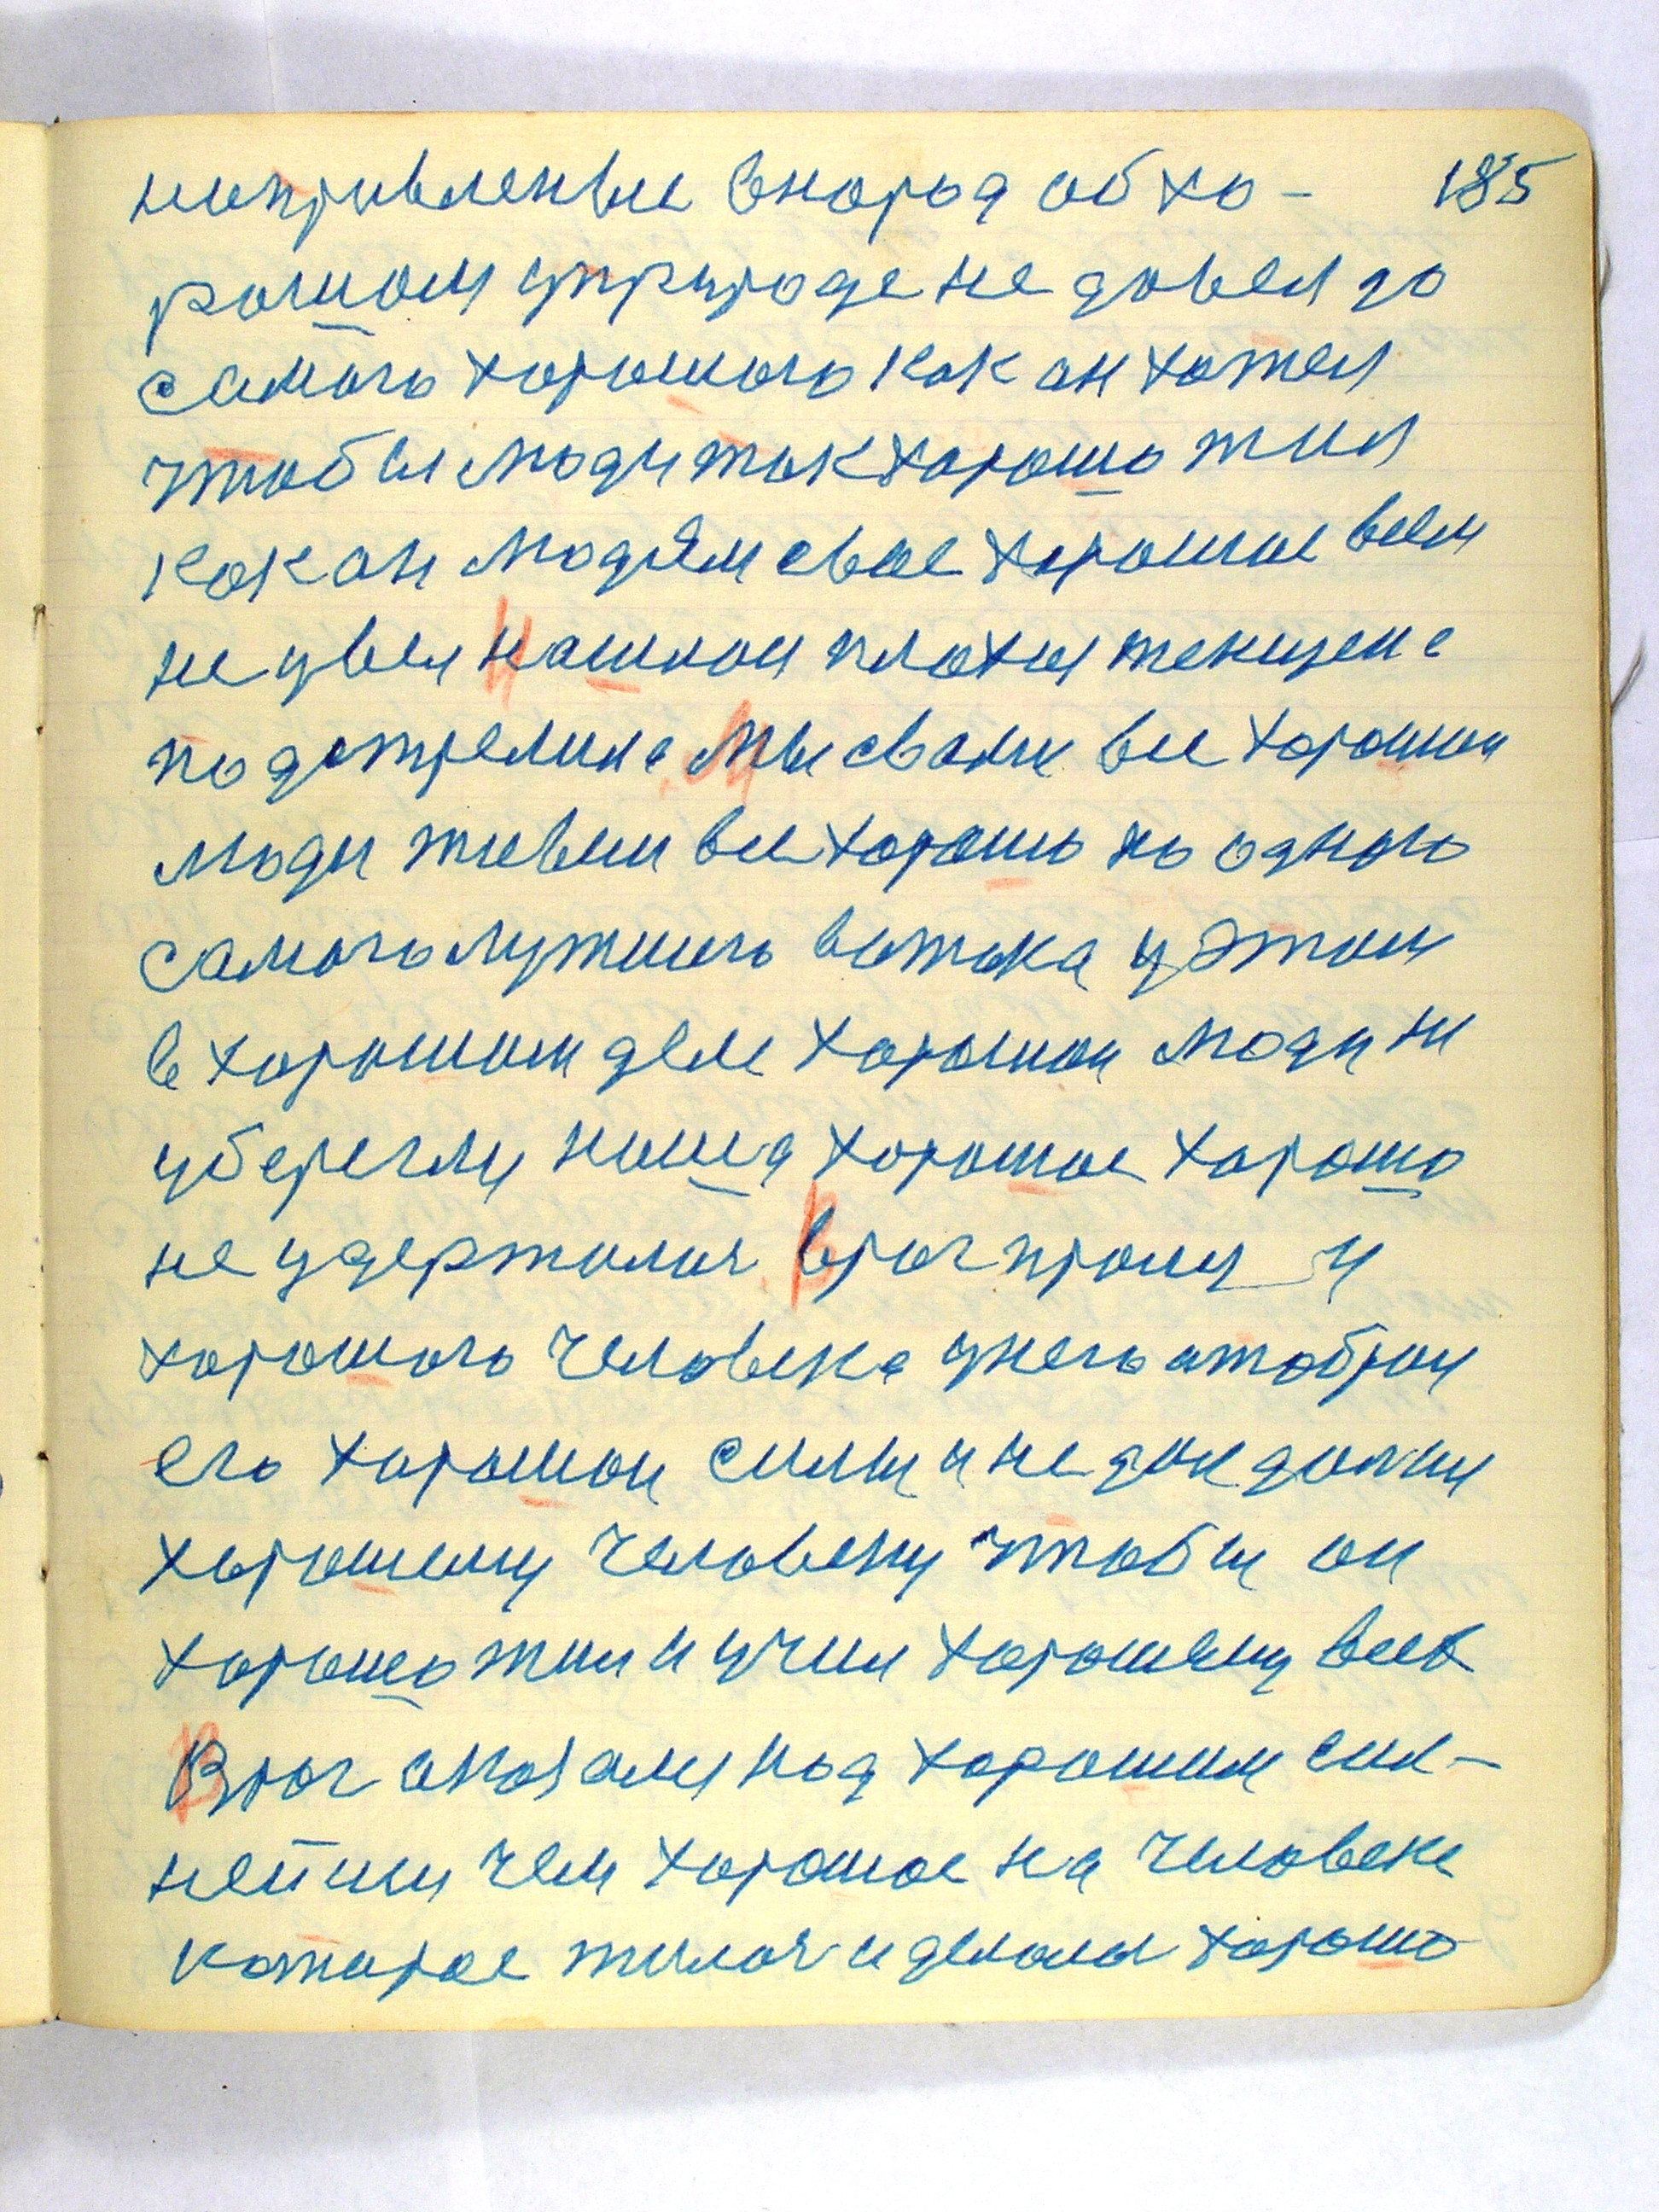 направленьем внарод об хо- 185
рошом уприроде не довел до
самого хорошого как он хотел
чтобы люди так хорошо жил
как он людям свое хорошое всем
не увел нашлои плохия женщена
подстрелила Мы сваи все хорошии
люди живем все хорошо но одного
самого лутшего ветока у этом
в хорошом деле хорошои люди ни
уберегли наше хорошое хорошо
не удержалоя враг прошу у
хорошого человека унего отобрал
его хорошои силы и не дал далши
хорошему человеку чтобы он
хорошо жил и учил хорошему всех
Враг оказалы над хорошим сил-
нейшы чем хорошое на человеке
которое жилоя и делалы хорошо